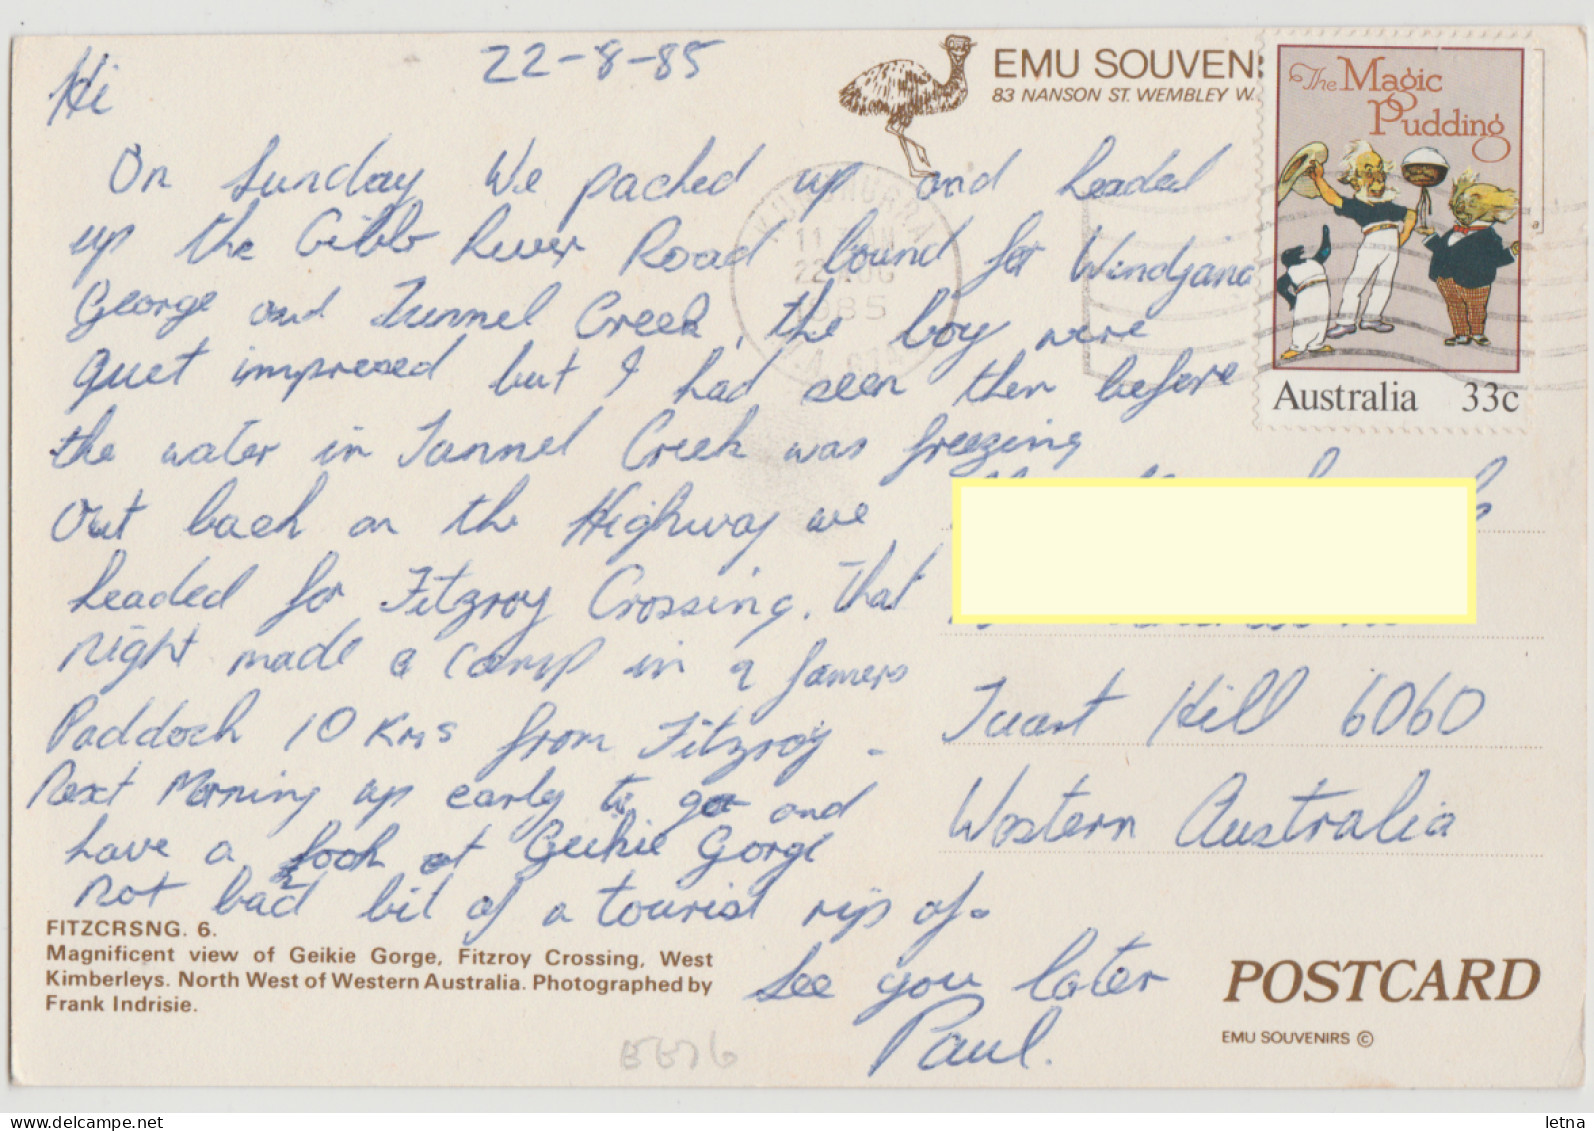 22-8-85
Hi
On Sunday We packed up and headed
up the Gibb River Road bound for Windjana
George and Tunnel Creek, the boy were
quet impresed but I had seen them before
the water in Tunnel Creek was freezing
Out back on the Highway we
headed for Fitzroy Crossing. That
night made a camp in a famers
Paddock 10 Kms from Fitzroy.
Next Morning up early to go and
have a look at Geikie Gorge
not bad bit of a tourist rip of.
See you later
Paul.
EMU SOUVEN
83 NANSON ST. WEMBLEY W.
The Magic
Pudding
Australia 33c
KUNUNURRA
11
22 AUG
1985
W.A. 6743
Tuart Hill 6060
Western Australia
FITZCRSNG. 6.
Magnificent view of Geikie Gorge, Fitzroy Crossing, West
Kimberleys. North West of Western Australia. Photographed by
Frank Indrisie.
POSTCARD
EMU SOUVENIRS ©
letna